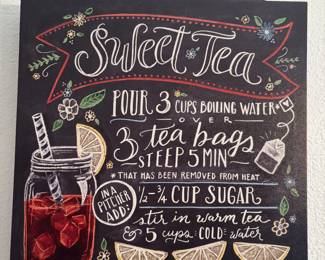 Sweet Tea
POUR 3 CUPS BOILING WATER
OVER
3 tea bags
STEEP 5 MIN
*THAT HAS BEEN REMOVED FROM HEAT
IN A PITCHER ADD: ½-¾ CUP SUGAR
stir in warm tea
& 5 cups COLD water